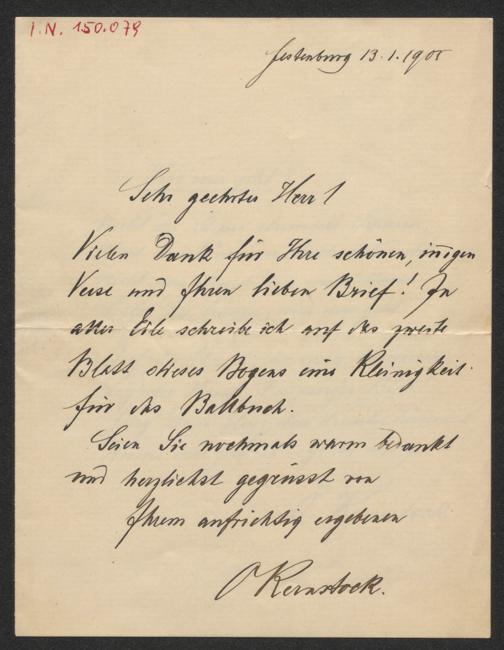 I.N. 150.079
Festenburg 13.1.190
Sehr geehrter Herr!
Vielen Dank für Ihre schönen, innigen
Verse und Ihren lieben Brief! In
aller Eile schreibe ich auf das zweite
Blatt dieses Bogens eine Kleinigkeit
für das Ballbuch.
Seien Sie nochmals warm bedankt
und herzlichst gegrüsst von
Ihrem aufrichtig ergebenen
OKernstock.